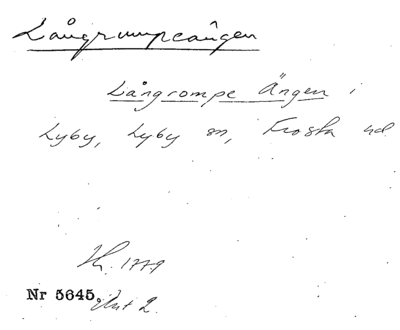 Långrumpeängen
Långrompe Ängen i
Lyby, Lyby sn, Frosta hd
1779
Nr 5645. Akt 2.